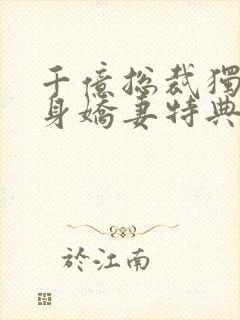 千億总裁獨
身嬌妻特典
於江南